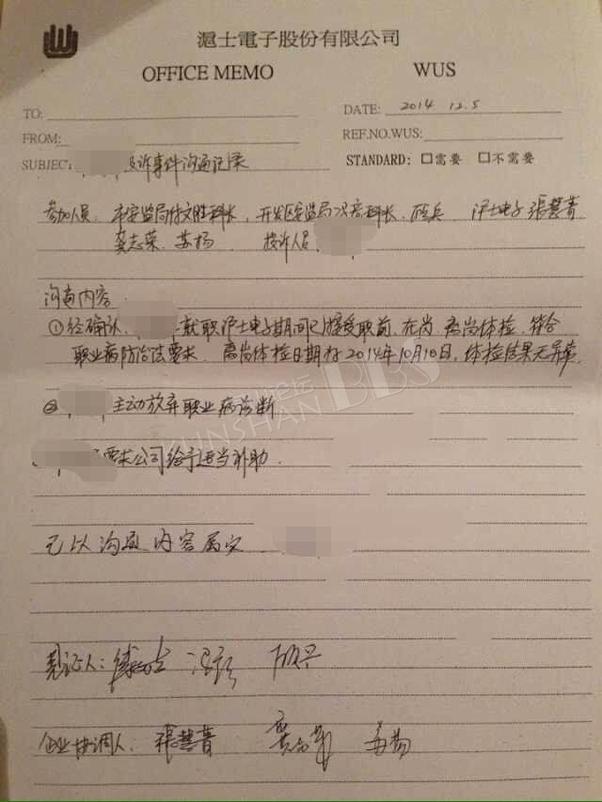 滬士電子股份有限公司
OFFICE MEMO WUS
TO:
DATE: 2014 12.5
FROM:
REF.NO.WUS:
SUBJECT 投诉事件沟通记录
STANDARD: □需要 □不需要
参加人员 市安监局付文胜科长, 开发区安监局 科长, 沪士电子 張慧菁
龚志荣 苏扬 投诉人员
沟通内容
①经确认, 就职沪士电子期间已接受职前, 在岗, 离岗体检, 符合
职业病防治法要求. 离岗体检日期为2014年10月10日, 体检结果无异常
② 主动放弃职业病诊断
要求公司给予适当补助.
以沟通内容属实
KUNSHAN论坛BBS
見证人:
企业协调人: 張慧菁 苏扬